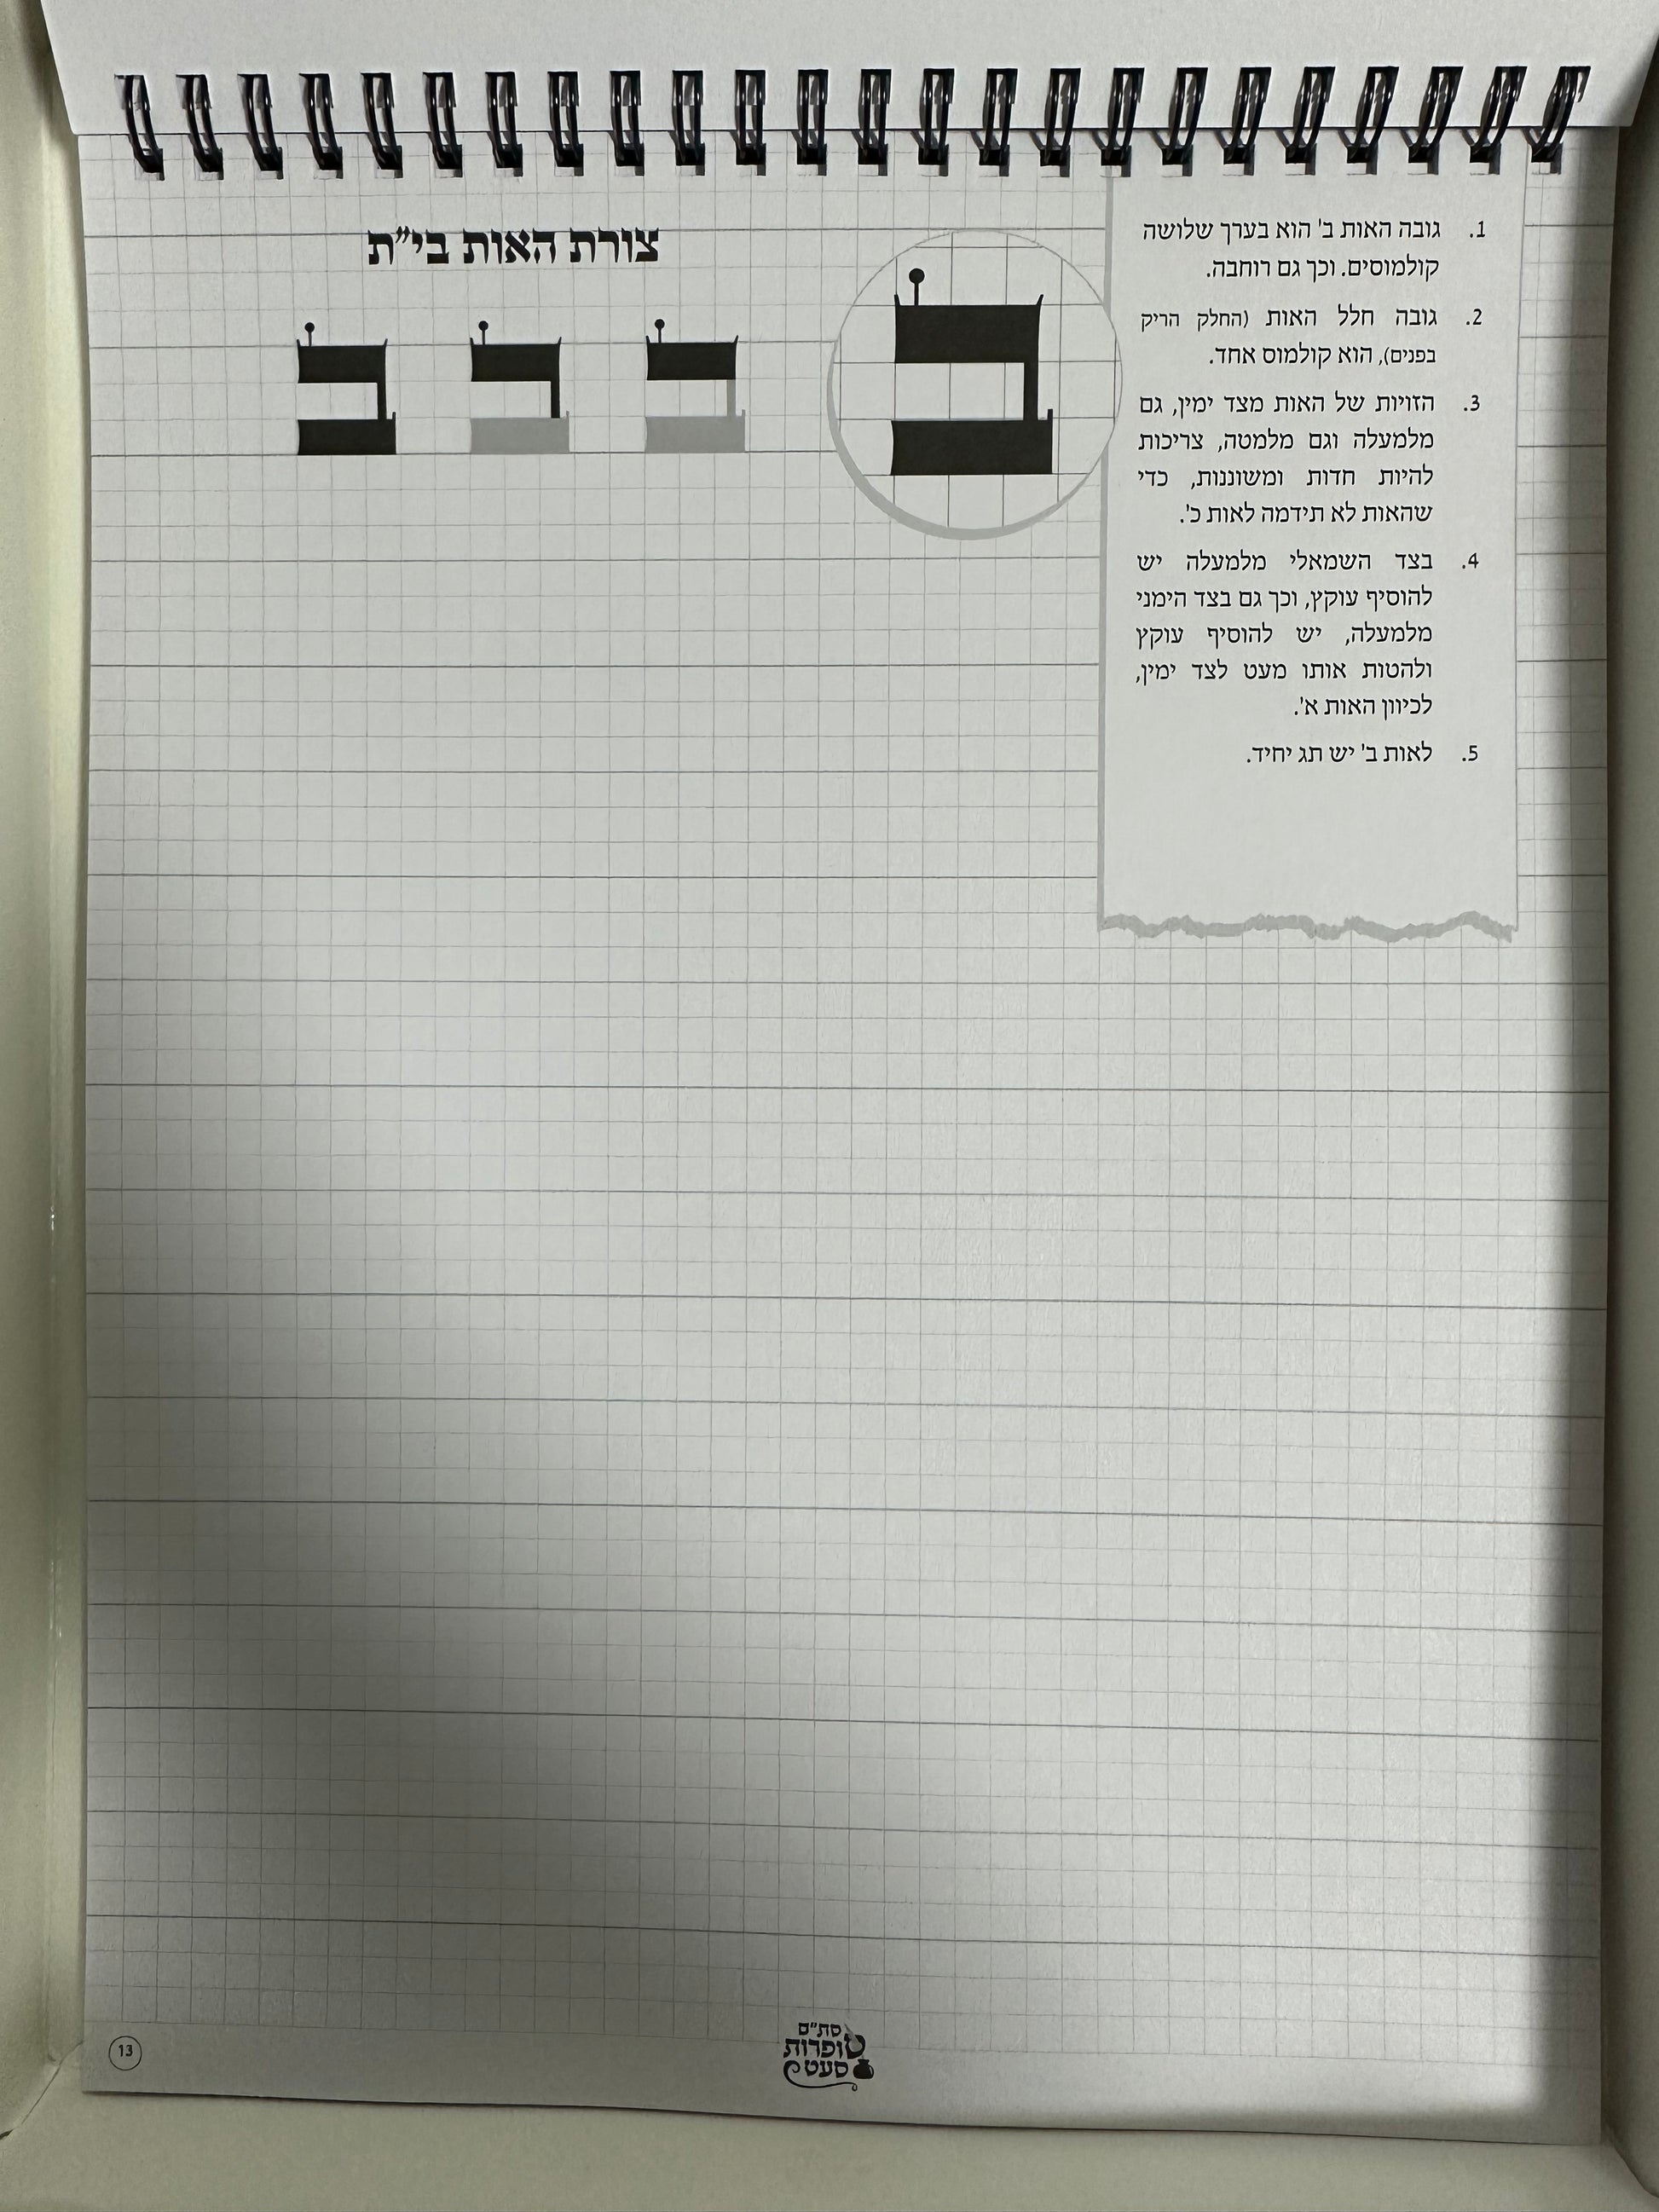 צורת האות בי״ת
ב
ב ב ב
1. גובה האות ב' הוא בערך שלושה
קולמוסים. וכך גם רוחבה.
2. גובה חלל האות (החלק הריק
בפנים), הוא קולמוס אחד.
3. הזויות של האות מצד ימין, גם
מלמעלה וגם מלמטה, צריכות
להיות חדות ומשוננות, כדי
שהאות לא תידמה לאות כ'.
4. בצד השמאלי מלמעלה יש
להוסיף עוקץ, וכך גם בצד הימני
מלמעלה, יש להוסיף עוקץ
ולהטות אותו מעט לצד ימין,
לכיוון האות א'.
5. לאות ב' יש תג יחיד.
סת״ם
סופרות
סעט
13